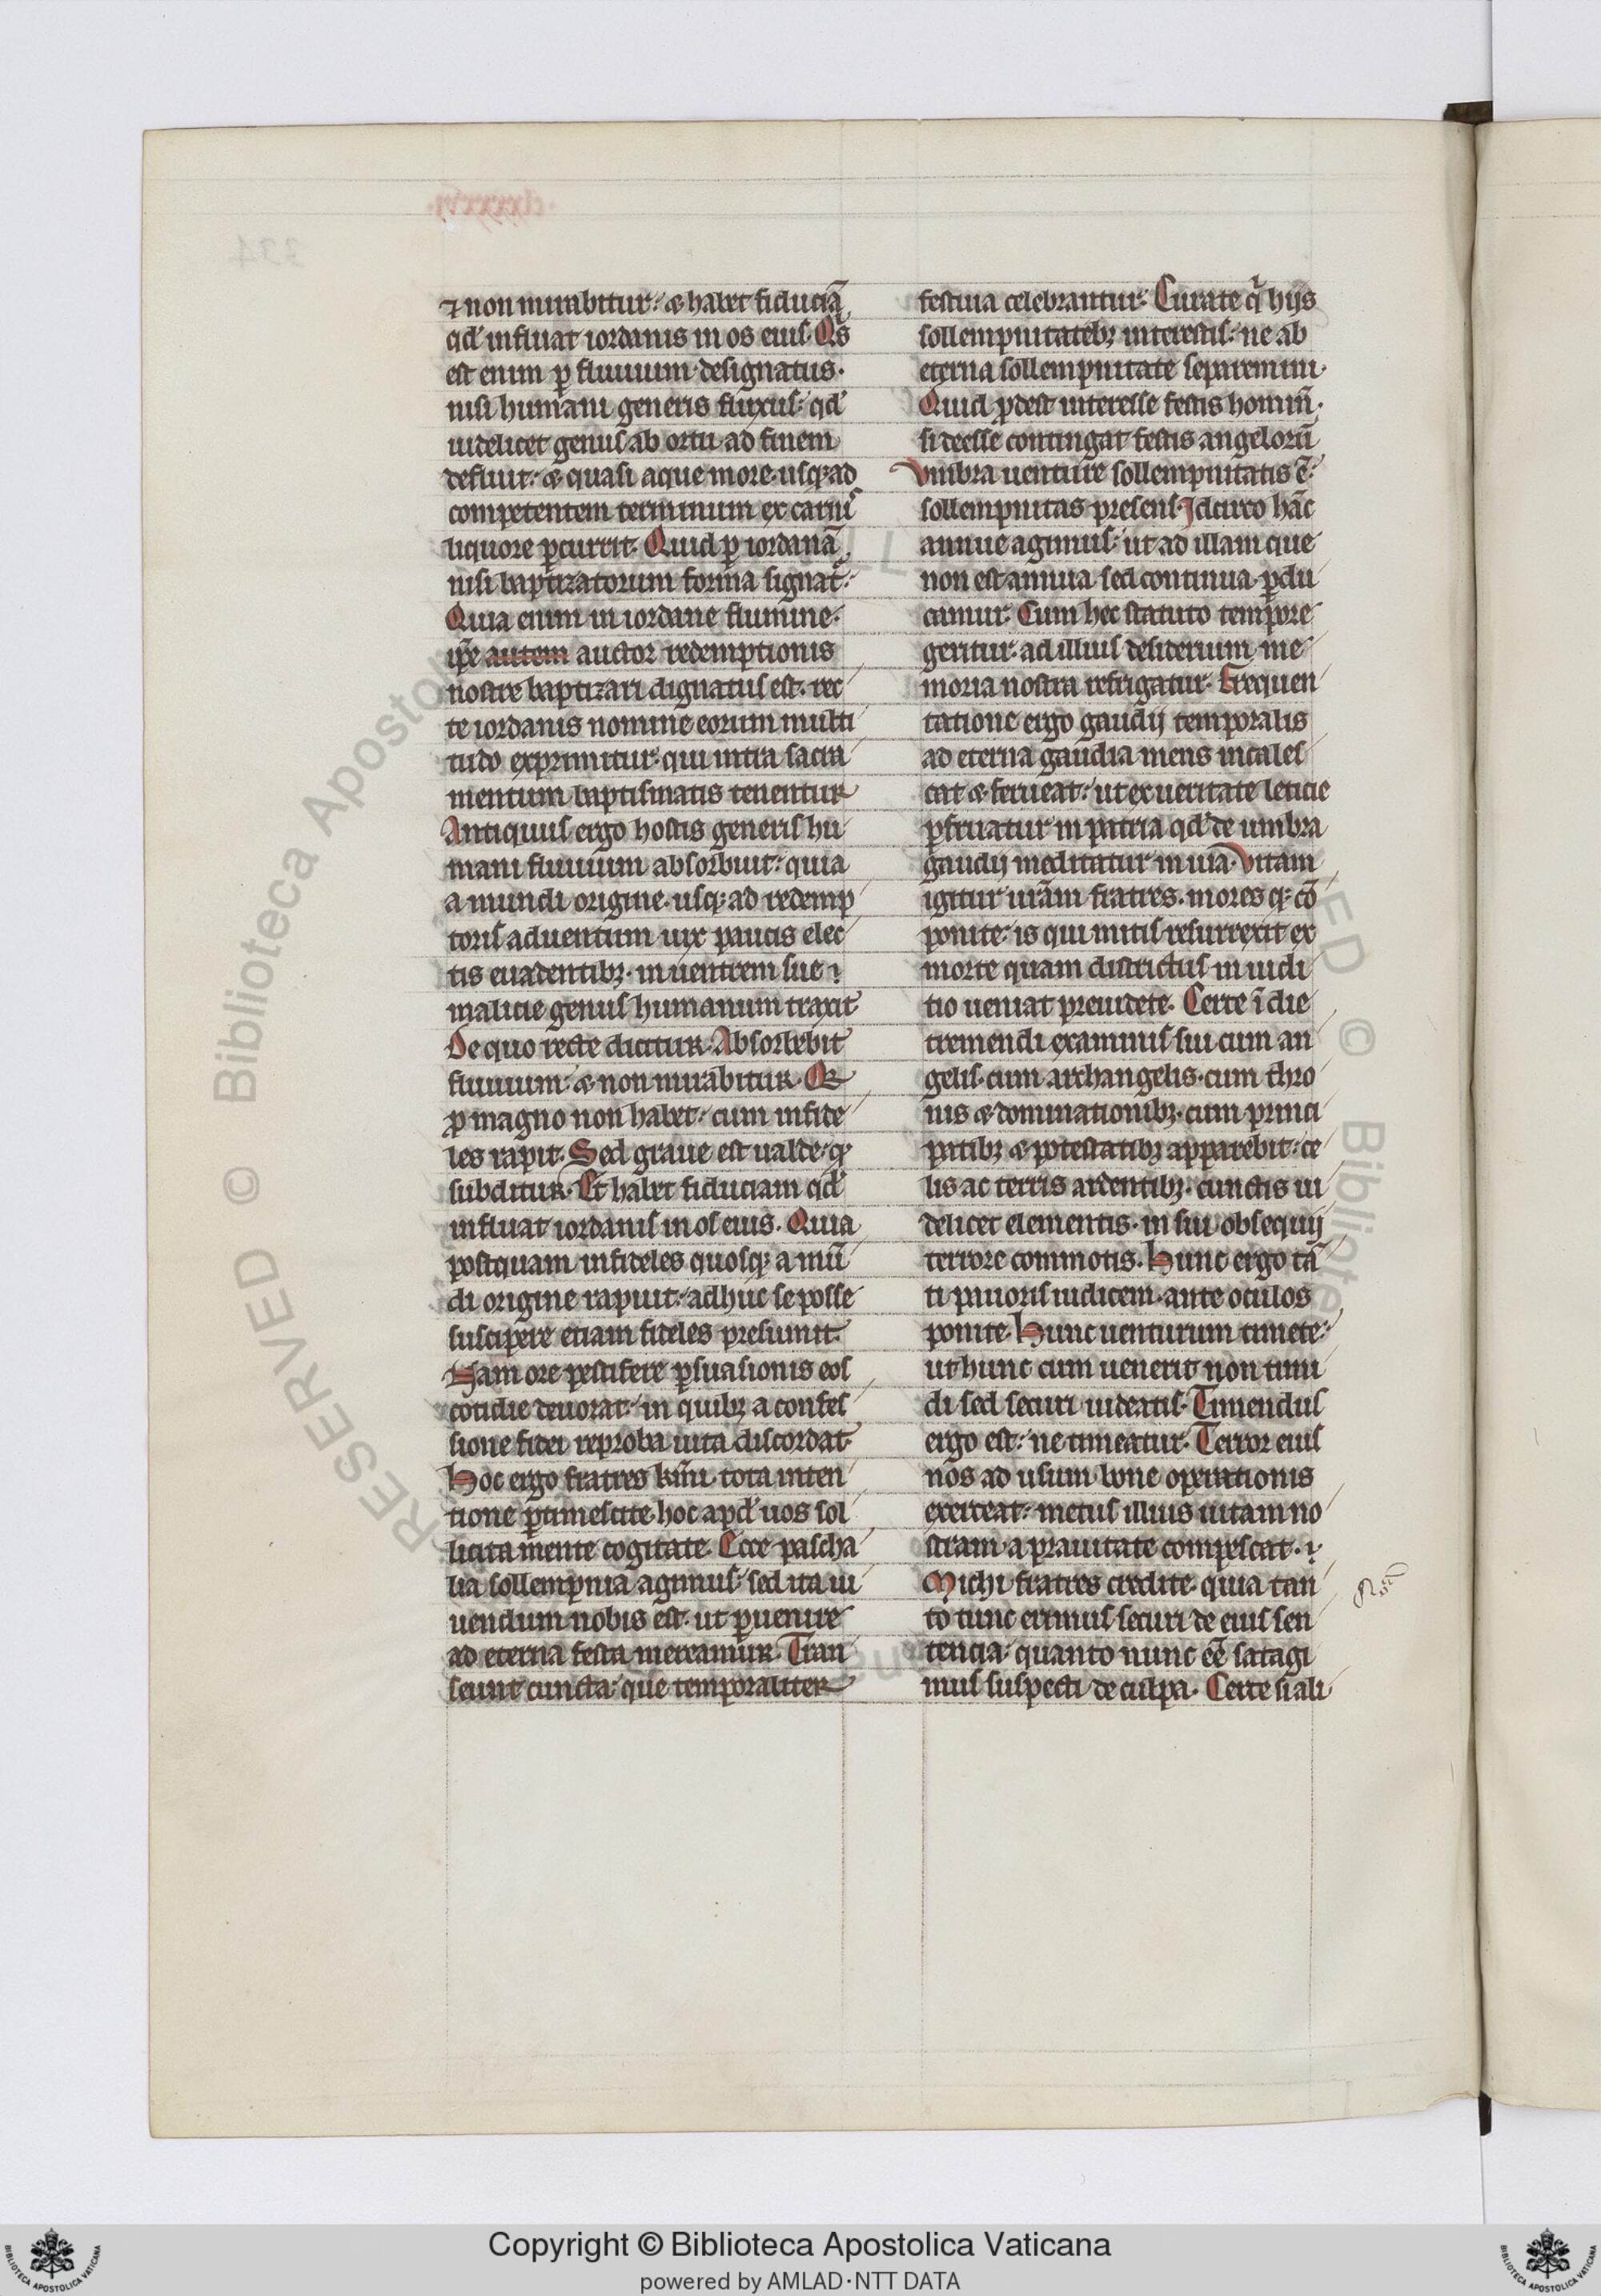 ⁊ non mirabitur. ⁊ habet fiduciā
qđ influat iordanis in os eius. Qͥs
est enim ꝑ fluuium designatus.
nisi humani generis fluxus. qđ
uidelicet genus ab ortu ad finem
defluit. ⁊ quasi aque more. usqꝫ ad
competentem terminum ex carnis
liquore ꝑcurrit. Quid ꝑ iordanē
nisi baptizatorum forma signat᷑.
Quia enim in iordane flumine.
ip̄e autem auctor redemptionis
nostre baptizari dignatus est. rec
te iordanis nomine eorum multi
tudo exprimitur. qui intra sacra
mentum baptismatis tenentur
Antiquus ergo hostis generis hu
mani fluuium absorbuit. quia
a mundi origine. usqꝫ ad redemp
toris aduentum uix paucis elec
tis euadentibꝫ. in uentrem sue
malicie genus humanum traxit
De quo recte dicitur. Absorbebit
fluuium. ⁊ non mirabitur. Qꝛ
ꝓ magno non habet. cum infide
les rapit. Sed graue est ualde. qđ
subditur. Et habet fiduciam qđ
influat iordanis in os eius. Quia
postquam infideles quosqꝫ a mū
di origine rapuit. adhuc se posse
suscipere etiam fideles presumit.
Nam ore pestifere ꝑsuasionis eos
cotidie deuorat. in quibꝫ a confes
sione fidei reproba uita discordat.
Hoc ergo fratres kr̄mi tota inten
tione ꝑtimescite. hoc apđ uos sol
licita mente cogitate. Ecce pascha
lia sollempnia agimus. sed ita ui
uendum nobis est. ut ꝑuenire
ad eterna festa mereamur. Tran
seunt cuncta. que temporaliter
festiua celebrantur. Curate qͥ hijs
sollempnitatibꝫ interestis. ne ab
eterna sollempnitate separemini.
Quid ꝓdest interesse festis hominū.
si deesse contingat festis angelorū
Vmbra uenture sollempnitatis ē.
sollempnitas presens. Idcirco hāc
annue agimus. ut ad illam que
non est annua sed continua. ꝑdu
camur. Cum hec statuto tempore
geritur. ad illius desiderium. me
moria nostra refrigatur. Frequen
tatione ergo gaudij temporalis
ad eterna gaudia mens incales
cat ⁊ ferueat. ut ex ueritate leticie
ꝑfruatur in patria qđ de umbra
gaudij meditatur in uia. Vitam
igitur ur̄am fratres. mores qꝫ cō
ponite. is qui mitis resurrexit ex
morte quam districtus in iudi
tio ueniat preuidete. Certe ī die
tremendi examinis sui cum an
gelis. cum archangelis. cum thro
nis ⁊ dominationibꝫ. cum princi
patibꝫ ⁊ potestatibꝫ apparebit. ce
lis ac terris ardentibꝫ. cunctis ui
delicet elementis. in sui obsequij
terrore commotis. Hunc ergo tā
ti pauoris iudicem. ante oculos
ponite. Hunc uenturum timete.
ut hunc cum uenerit non timi
di sed securi uideatis. Timendus
ergo est. ne timeatur. Terror eius
nos ad usum bone operationis
exerceat. metus illius uitam no
stram. a prauitate compescat.
Michi fratres credite. quia tan
to tunc erimus securi de eius sen
tencia. quanto nunc eē satagi
mus suspecti de culpa. Certe si ali
Copyright © Biblioteca Apostolica Vaticana
powered by AMLAD·NTT DATA